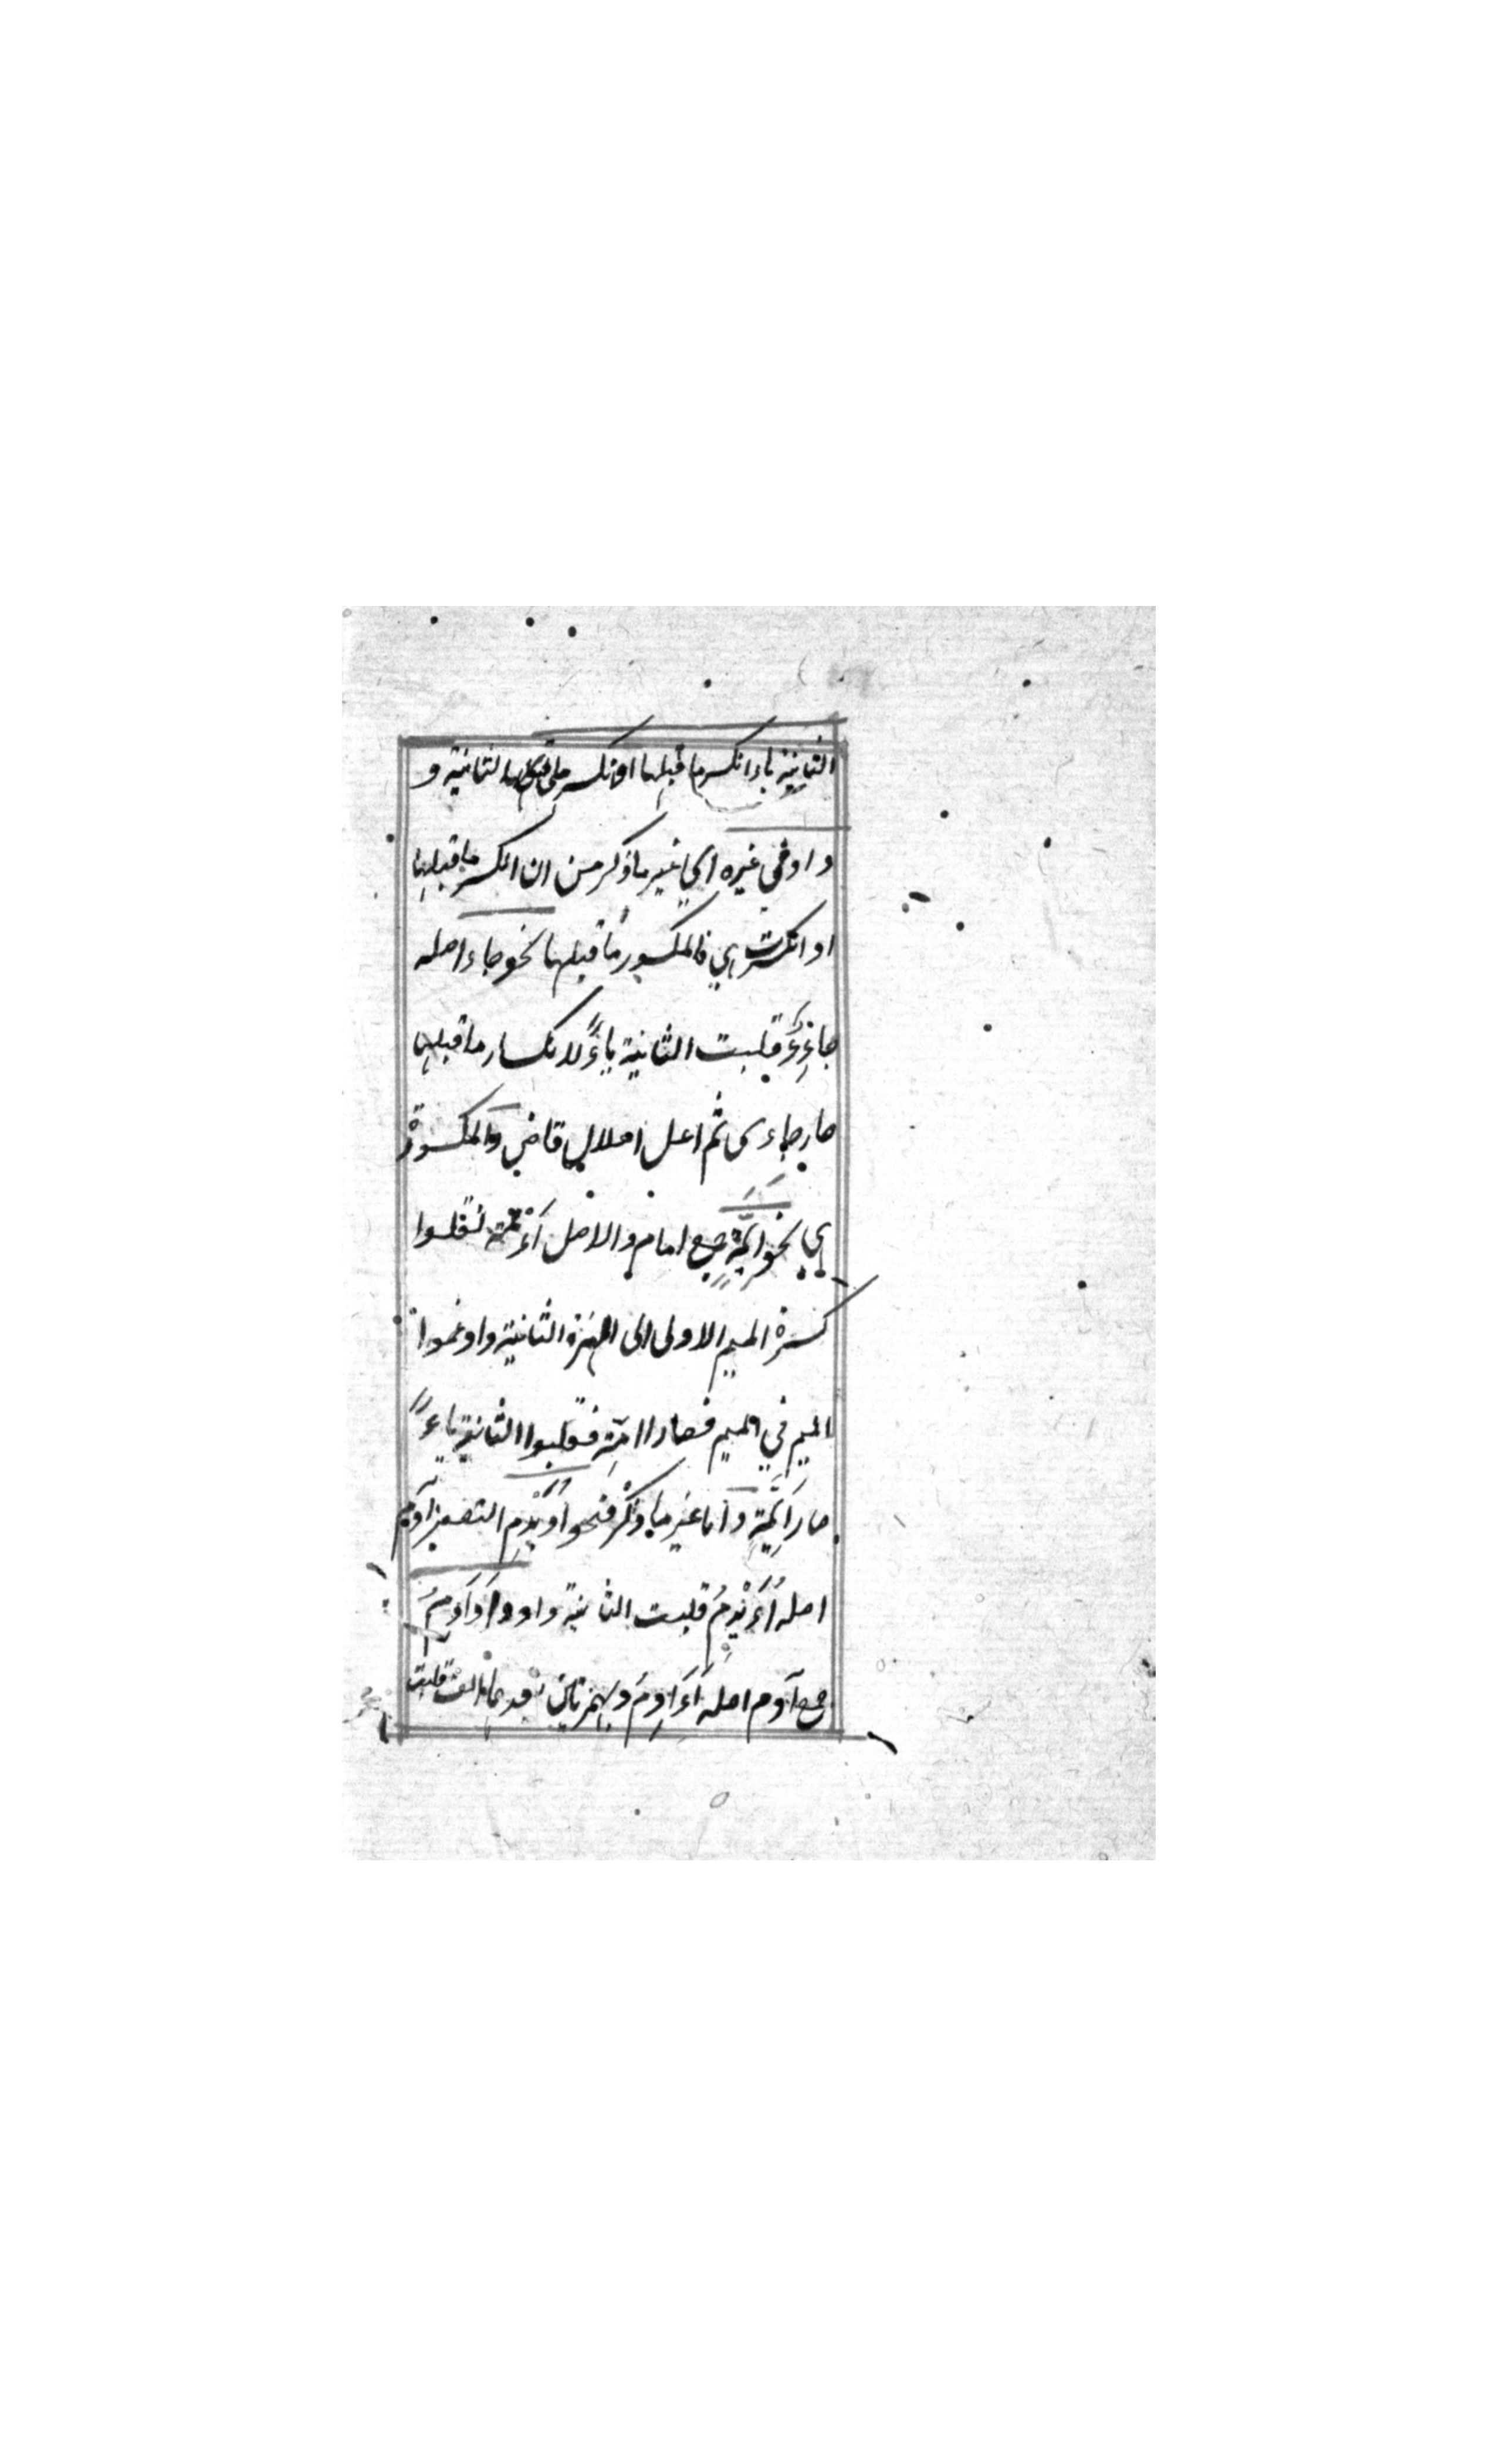 الثانية ياء انكسر ما قبلها او انكسر الثانية و
واو في غيره اي غير ما ذكر من ان انكسر ما قبلها
او انكسرت هي فالمكسور ما قبلها نحو جاء اصله
جاءِءٌ قلبت الثانية ياءً لانكسار ما قبلها
صار جاءى ثم اعل اعلال قاض والمكسورة
هي نحو ايمّة جمع امام والاصل أءْممة نقلوا
كسرة الميم الاولى الى الهمزة الثانية وادغموا
الميم في الميم فصار اامّة فقلبوا الثانية ياءً
صار أيمّة وأما غير ما ذكر فنحو أُوَيْدِم التصغير آدم
اصله أُءَيْدِمُ قلبت الثانية واوا وأَوَادِمُ
جمع آدم اصله أَءَادِمُ بهمزتين بعدهما الف قلبت